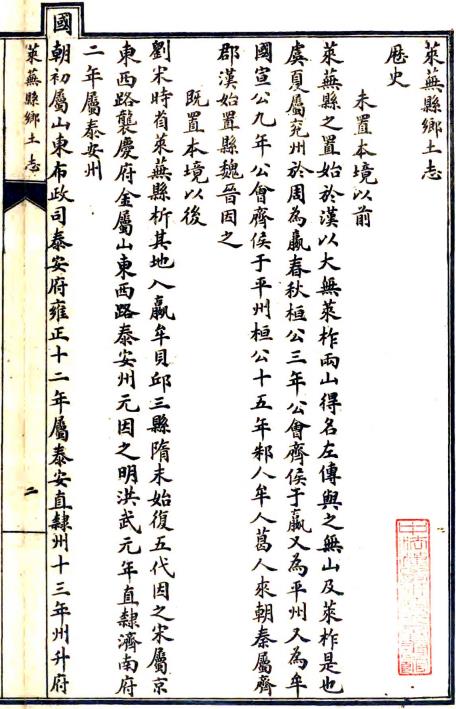 萊蕪縣鄉土志
歷史
未置本境以前
萊蕪縣之置始於漢以大無萊柞兩山得名左傳與之無山及萊柞是也
虞夏屬兖州於周為嬴春秋桓公三年公會齊侯于嬴又為平州又為牟
國宣公九年公會齊侯于平州桓公十五年邾人牟人葛人來朝秦屬齊
郡漢始置縣魏晉因之
既置本境以後
劉宋時省萊蕪縣析其地入嬴牟貝邱三縣隋末始復五代因之宋屬京
東西路襲慶府金屬山東西路泰安州元因之明洪武元年直隸濟南府
二年屬泰安州
國朝初屬山東布政司泰安府雍正十二年屬泰安直隸州十三年州升府
萊蕪縣鄉土志
二